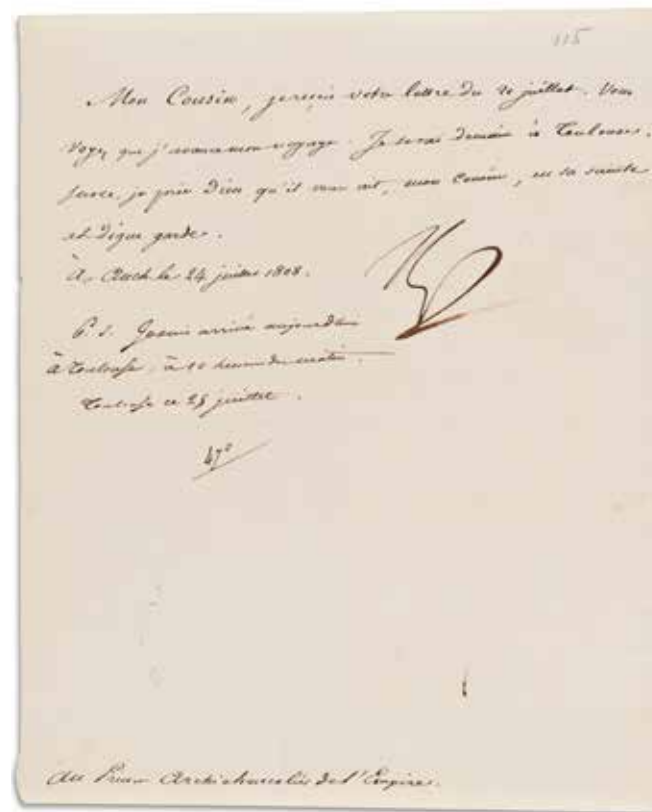 115
Mon Cousin, je reçois votre lettre du 20 juillet. Vous
voyez que j'avance mon voyage. Je serai demain à Toulouse.
sur ce, je prie Dieu qu'il vous ait, mon cousin, en sa sainte
et digne garde.
à Auch le 24 juillet 1808.
P. S. Je suis arrivé aujourd'hui
à Toulouse à 10 heures du matin.
Toulouse ce 25 juillet.
47e
Au Prince Archichancelier de l'Empire.